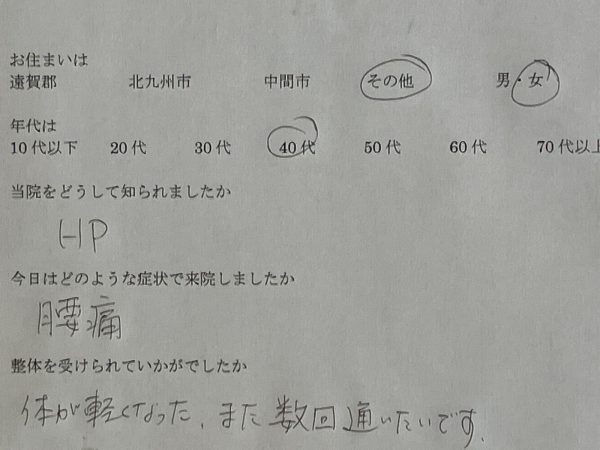 お住まいは
遠賀郡 北九州市 中間市 その他 男・女
年代は
10代以下 20代 30代 40代 50代 60代 70代以上
当院をどうして知られましたか
HP
今日はどのような症状で来院しましたか
腰痛
整体を受けられていかがでしたか
体が軽くなった、また数回通いたいです。